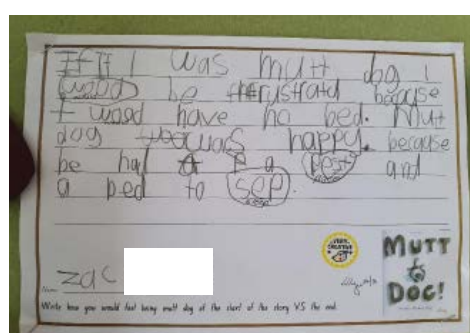 If I was mutt dog I
wood be frustratd because
I wood have no bed. Mutt
dog was happy. because
he had a pest and
a bed to sep.
VERY CREATIVE
MUTT
DOG!
zac
Write how you would feel being mutt dog at the start of the story V.S the end.